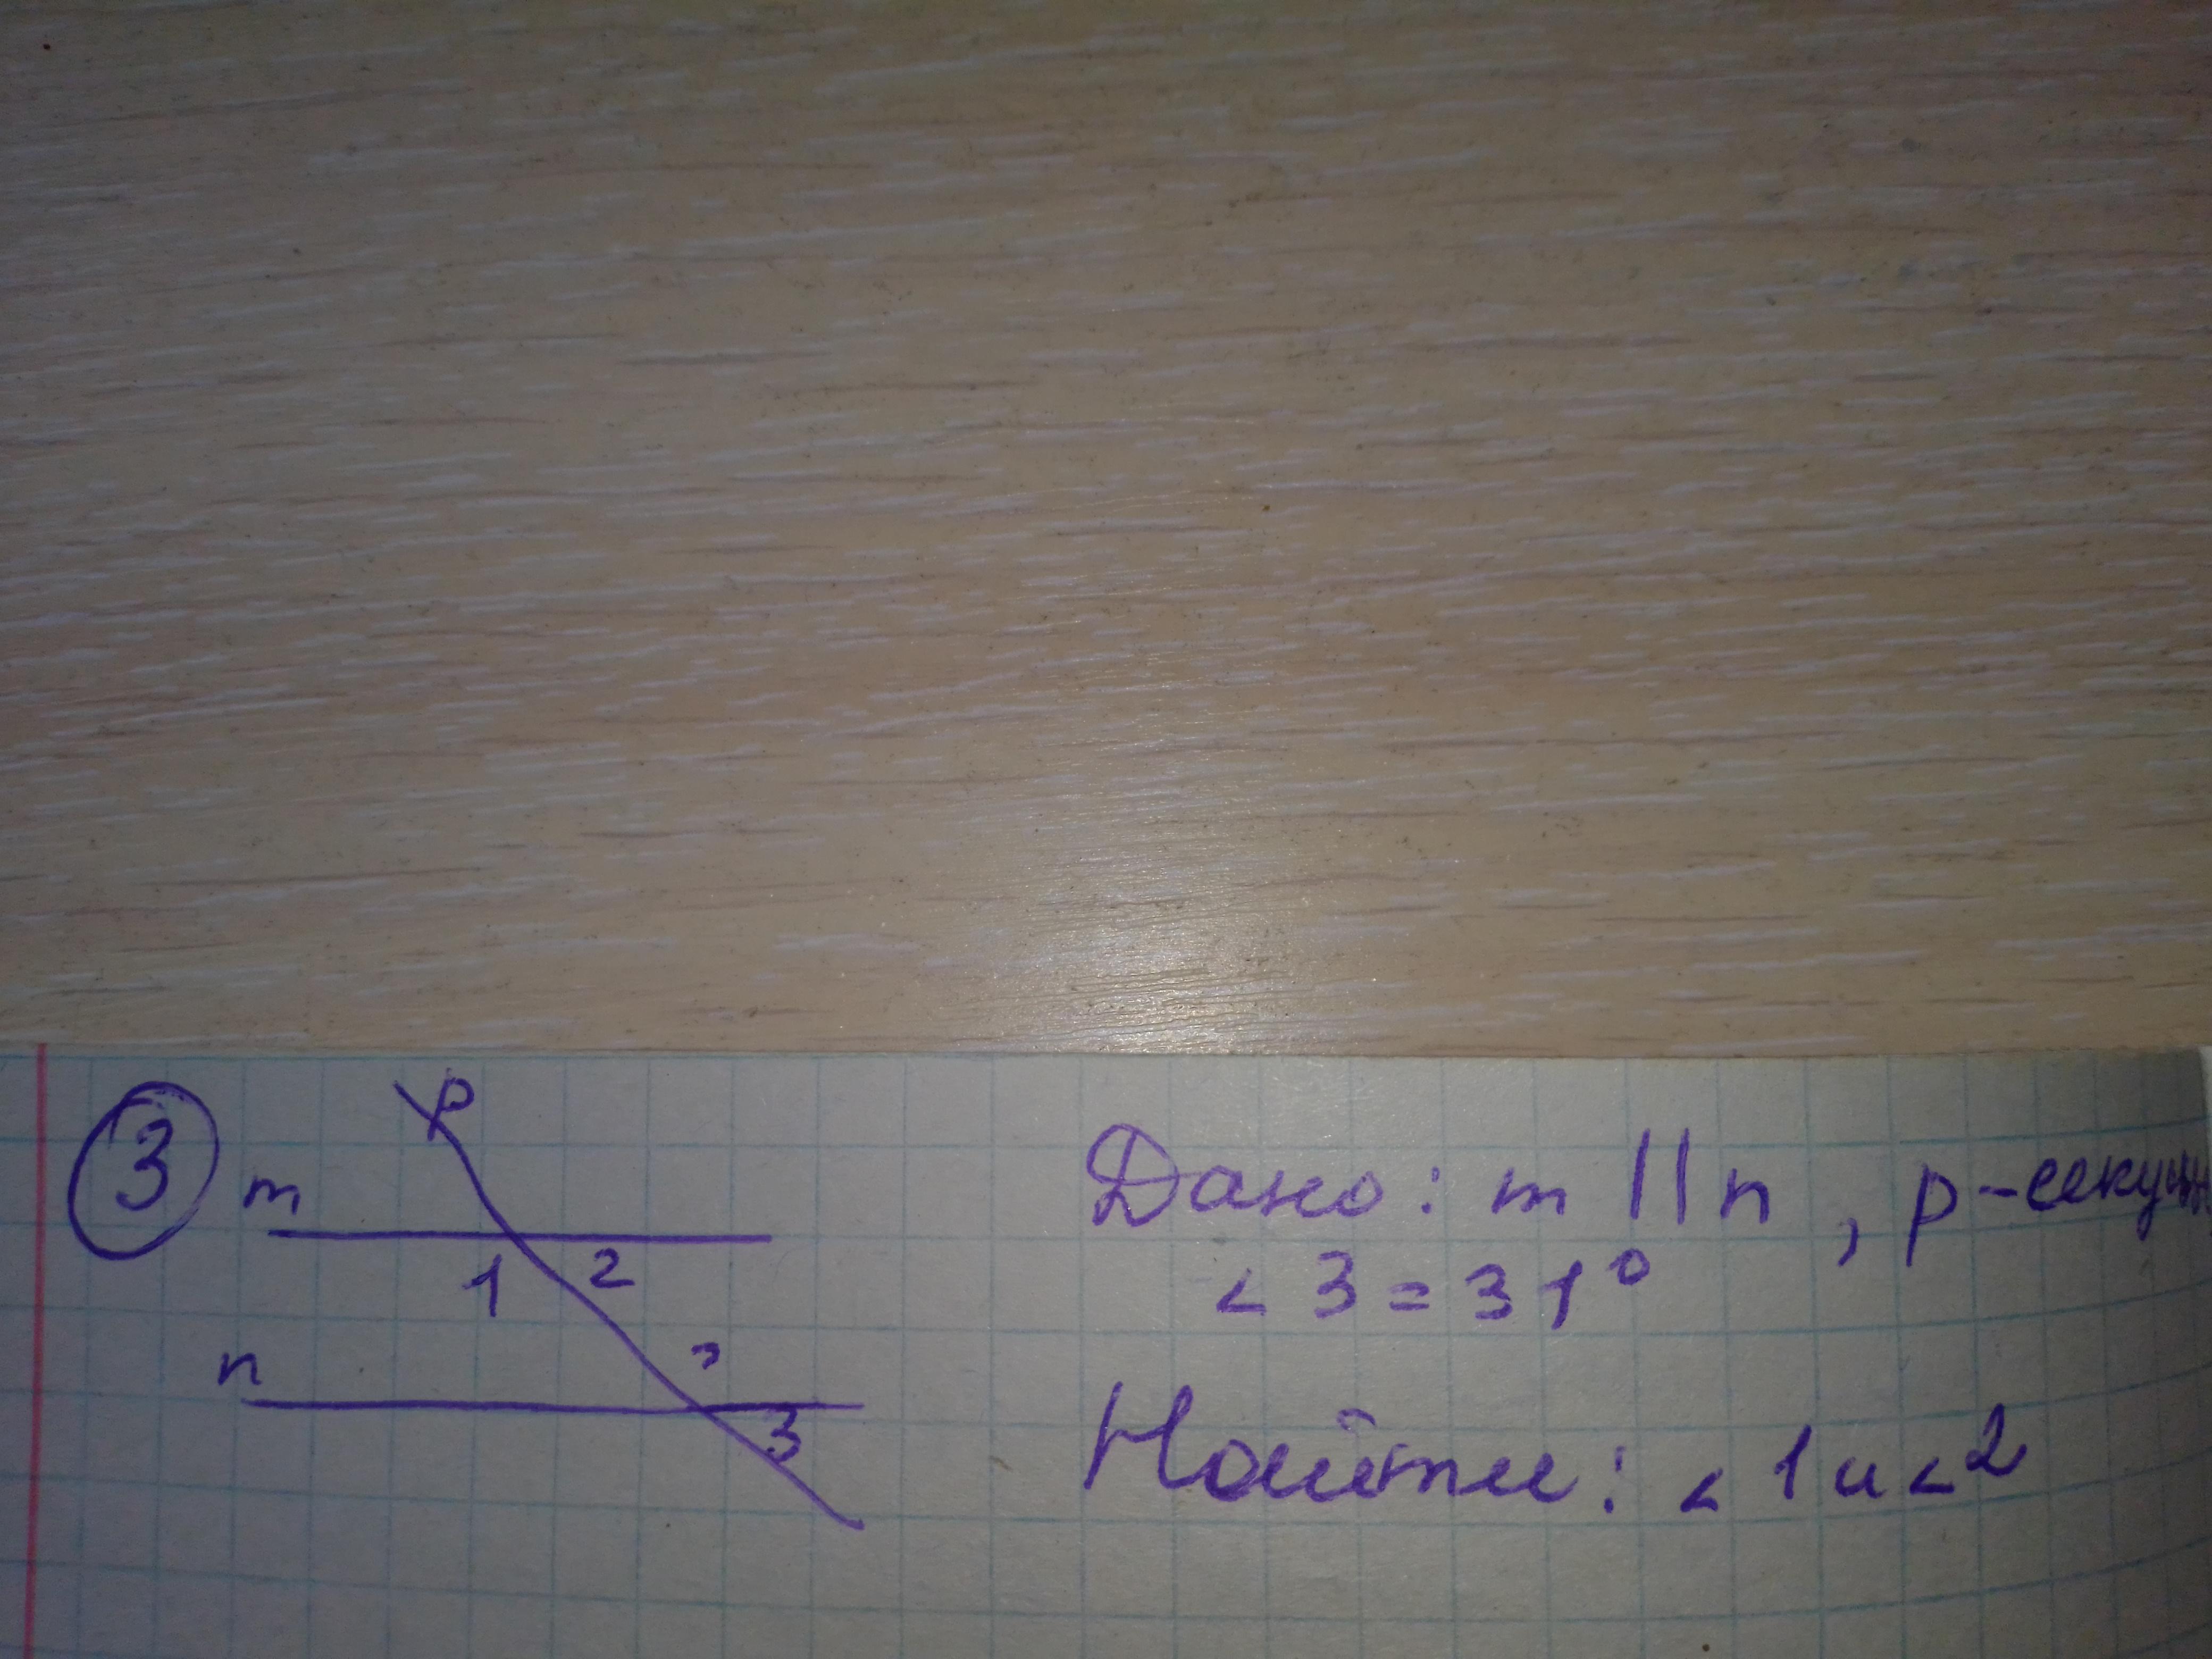 3
p
m
1 2
n
3
Дано: m || n, р-секущ
< 3 = 31°
Найти: < 1 и < 2